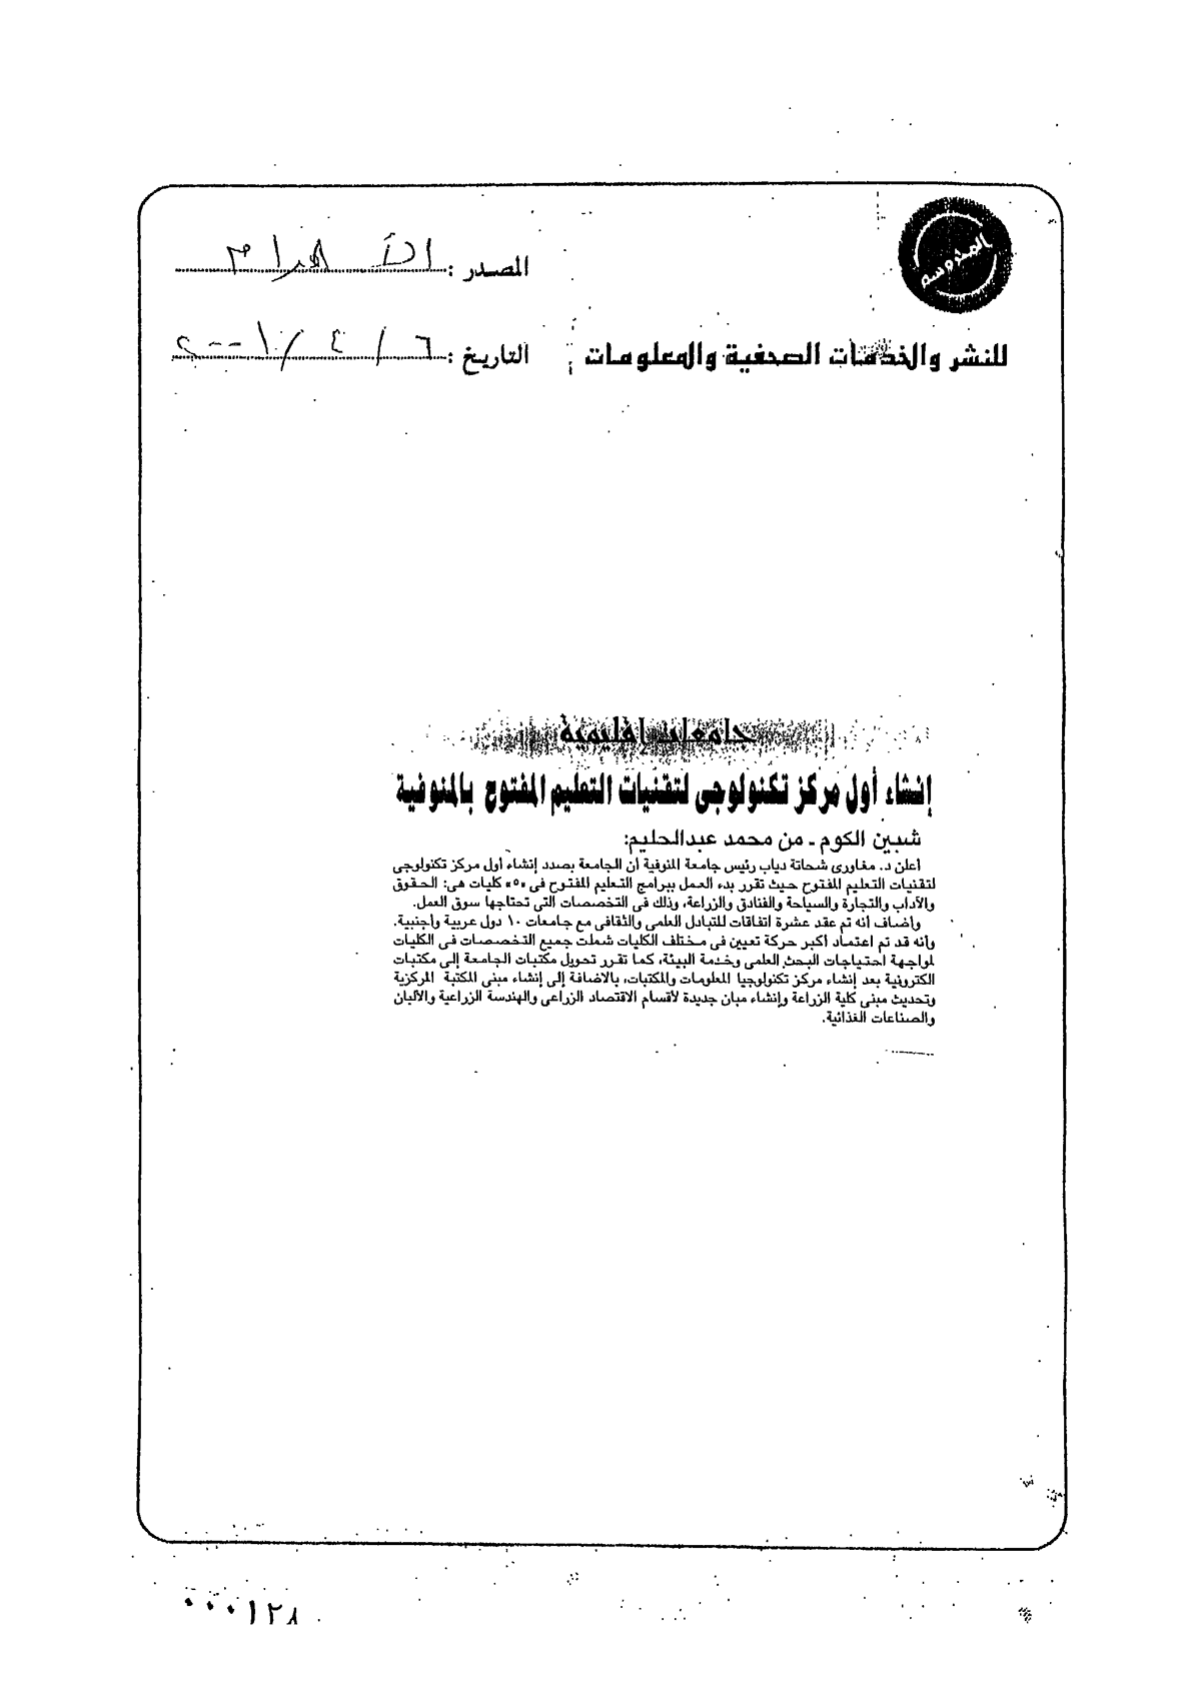 المحروسة
المصدر : الأهرام
للنشر والخدمات الصحفية والمعلومات
التاريخ : ٦ / ٤ / ٢٠٠١
جامعات إقليمية
إنشاء أول مركز تكنولوجى لتقنيات التعليم المفتوح بالمنوفية
شبين الكوم ـ من محمد عبدالحليم:
أعلن د. مغاورى شحاتة دياب رئيس جامعة المنوفية أن الجامعة بصدد إنشاء أول مركز تكنولوجى
لتقنيات التعليم المفتوح حيث تقرر بدء العمل ببرامج التعليم المفتوح فى «٥» كليات هى: الحقوق
والآداب والتجارة والسياحة والفنادق والزراعة، وذلك فى التخصصات التى تحتاجها سوق العمل.
وأضاف أنه تم عقد عشرة اتفاقات للتبادل العلمى والثقافى مع جامعات ١٠ دول عربية وأجنبية.
وأنه قد تم اعتماد أكبر حركة تعيين فى مختلف الكليات شملت جميع التخصصات فى الكليات
لمواجهة احتياجات البحث العلمى وخدمة البيئة، كما تقرر تحويل مكتبات الجامعة إلى مكتبات
الكترونية بعد إنشاء مركز تكنولوجيا المعلومات والمكتبات، بالاضافة إلى إنشاء مبنى المكتبة المركزية
وتحديث مبنى كلية الزراعة وإنشاء مبان جديدة لأقسام الاقتصاد الزراعى والهندسة الزراعية والألبان
والصناعات الغذائية.
٠٠٠١٢٨